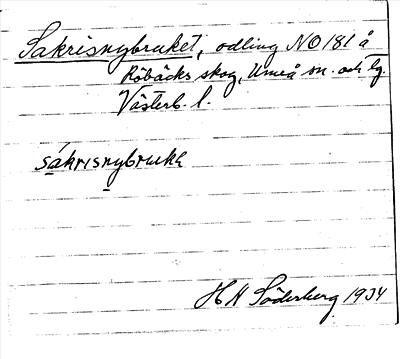 Sakrisnybruket, odling NO 181 å
Röbäcks skog, Umeå sn. och lg.
Västerb. l.
sákrisnybrukε
H H Söderberg 1934